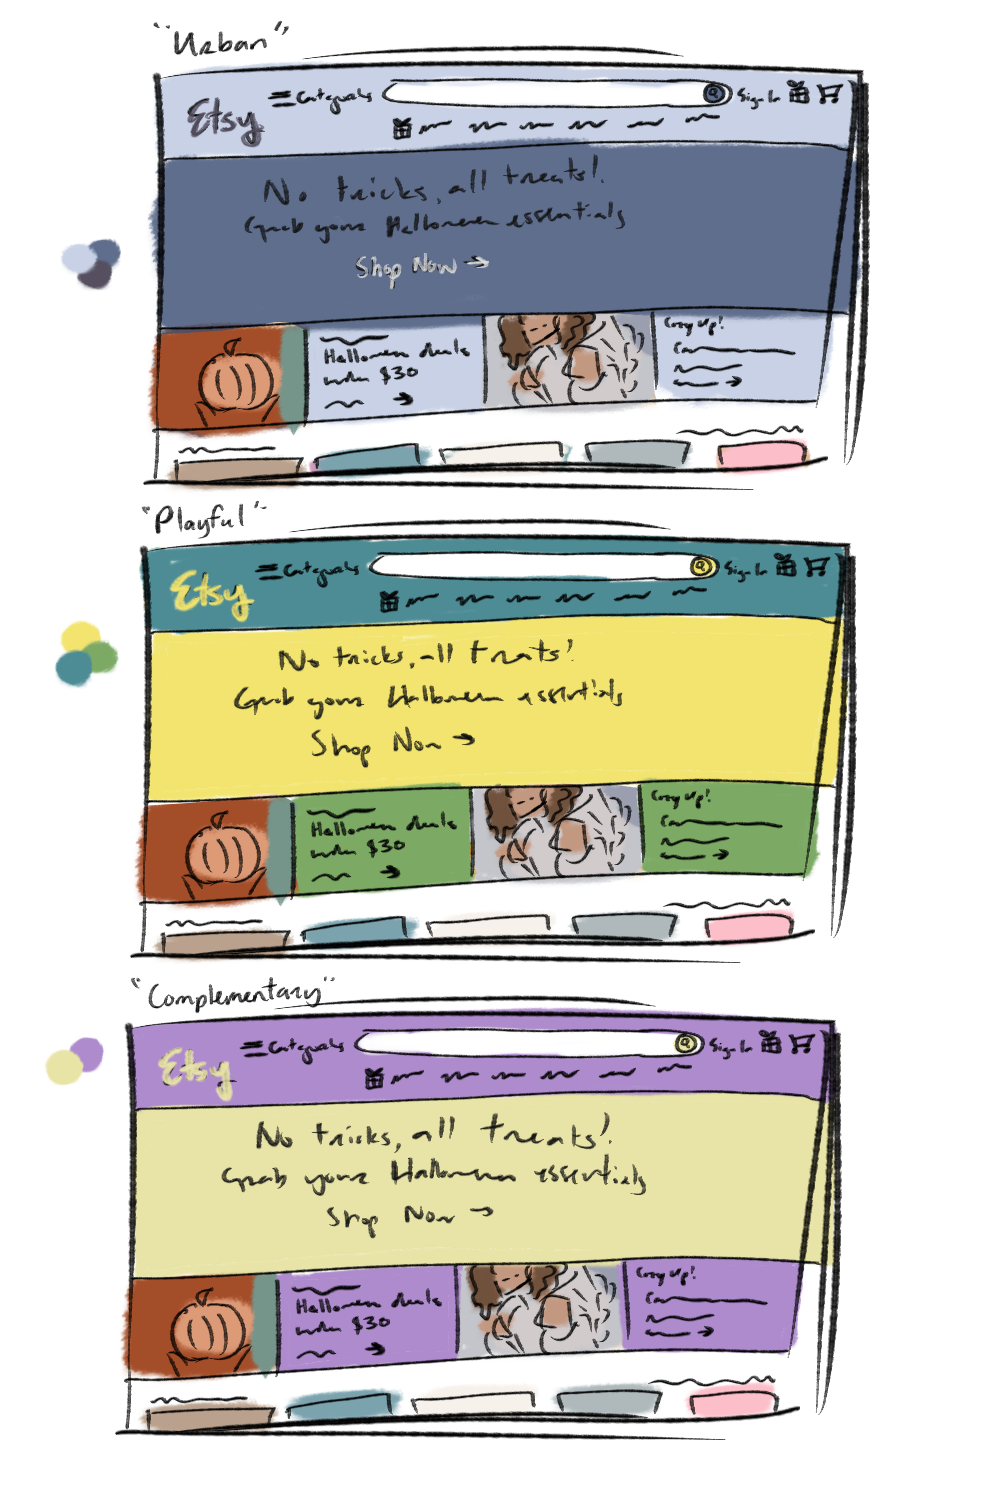 "Urban"
Etsy Categories Sign In
No tricks, all treats!
Grab your Halloween essentials
Shop Now →
Halloween deals
under $30
Cozy Up!
"Playful"
Etsy Categories Sign In
No tricks, all treats!
Grab your Halloween essentials
Shop Now →
Halloween deals
under $30
Cozy Up!
"Complementary"
Etsy Categories Sign In
No tricks, all treats!
Grab your Halloween essentials
Shop Now →
Halloween deals
under $30
Cozy Up!